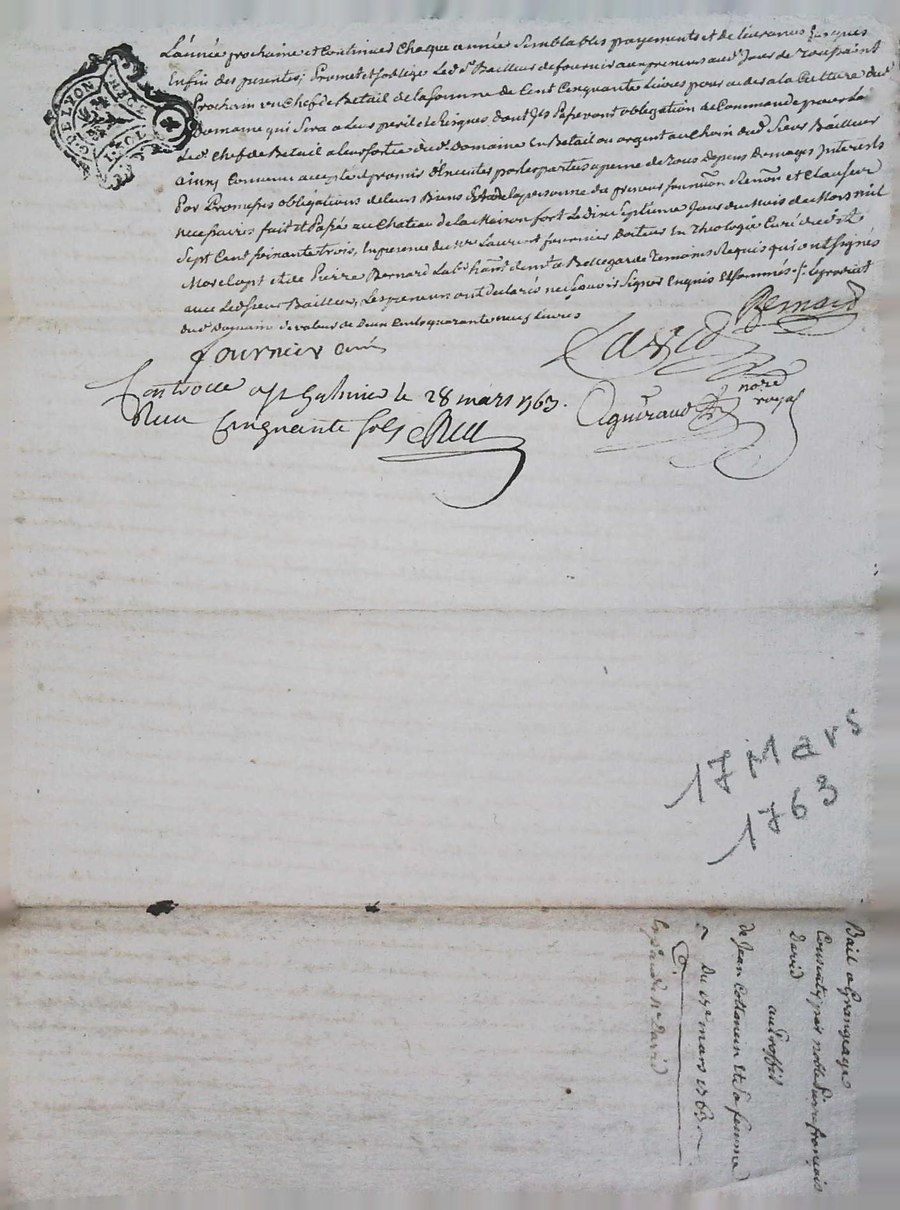 L'année prochaine et Continuer Chaque année Semblables payements et delivrances Jusques
Enfin des presentes; Promet et soblige Led. Sr. Bailleur de fournir aux preneurs aud. Jour de Toussaint
Prochain un Chef de Betail de la somme de Cent Cinquante Livres pour aider a la Culture dud.
Domaine qui Sera a Leur peril et Risques dont Ils Passeront obligation de Commande pour Le
Led. Chef de Betail a leur sortie dud. Domaine En Betail ou argent au Choix dud. Sieur Bailleur
ainsy Convenu accepté et promis d'executer par les parties a peine de Tous Depens Domages Interets
Par Promesses obligations de Leurs Biens de la personne des preneurs et Clauses
necessaires fait et Passé au Chateau de la Maison fort Le Dix Septieme Jour du Mois de Mars mil
Sept Cent Soixante trois, En presence de Mre Laurent fournier Docteur En Theologie Curé
et de Pierre Bernard Lab. habitant de a Bellegarde Temoins Requis qui ont Signés
avec Led. Sieur Bailleur, Les preneurs ont declaré ne Sçavoir Signer Enquis Et Sommés
dud. de valeur de Deux Cents quarante neuf Livres
Bernard
fournier curé
David
Controllé a St Galmier le 28 mars 1763.
Reçu Cinquante Sols
Aguiraud nore
royal
G. DE LYON
17 Mars
1763
Bail a Grangeage
Consenty par noble Pierre françois
David
au Proffit
de Jean et Sa femme
Du 17e mars 1763
Expedié a Mr David